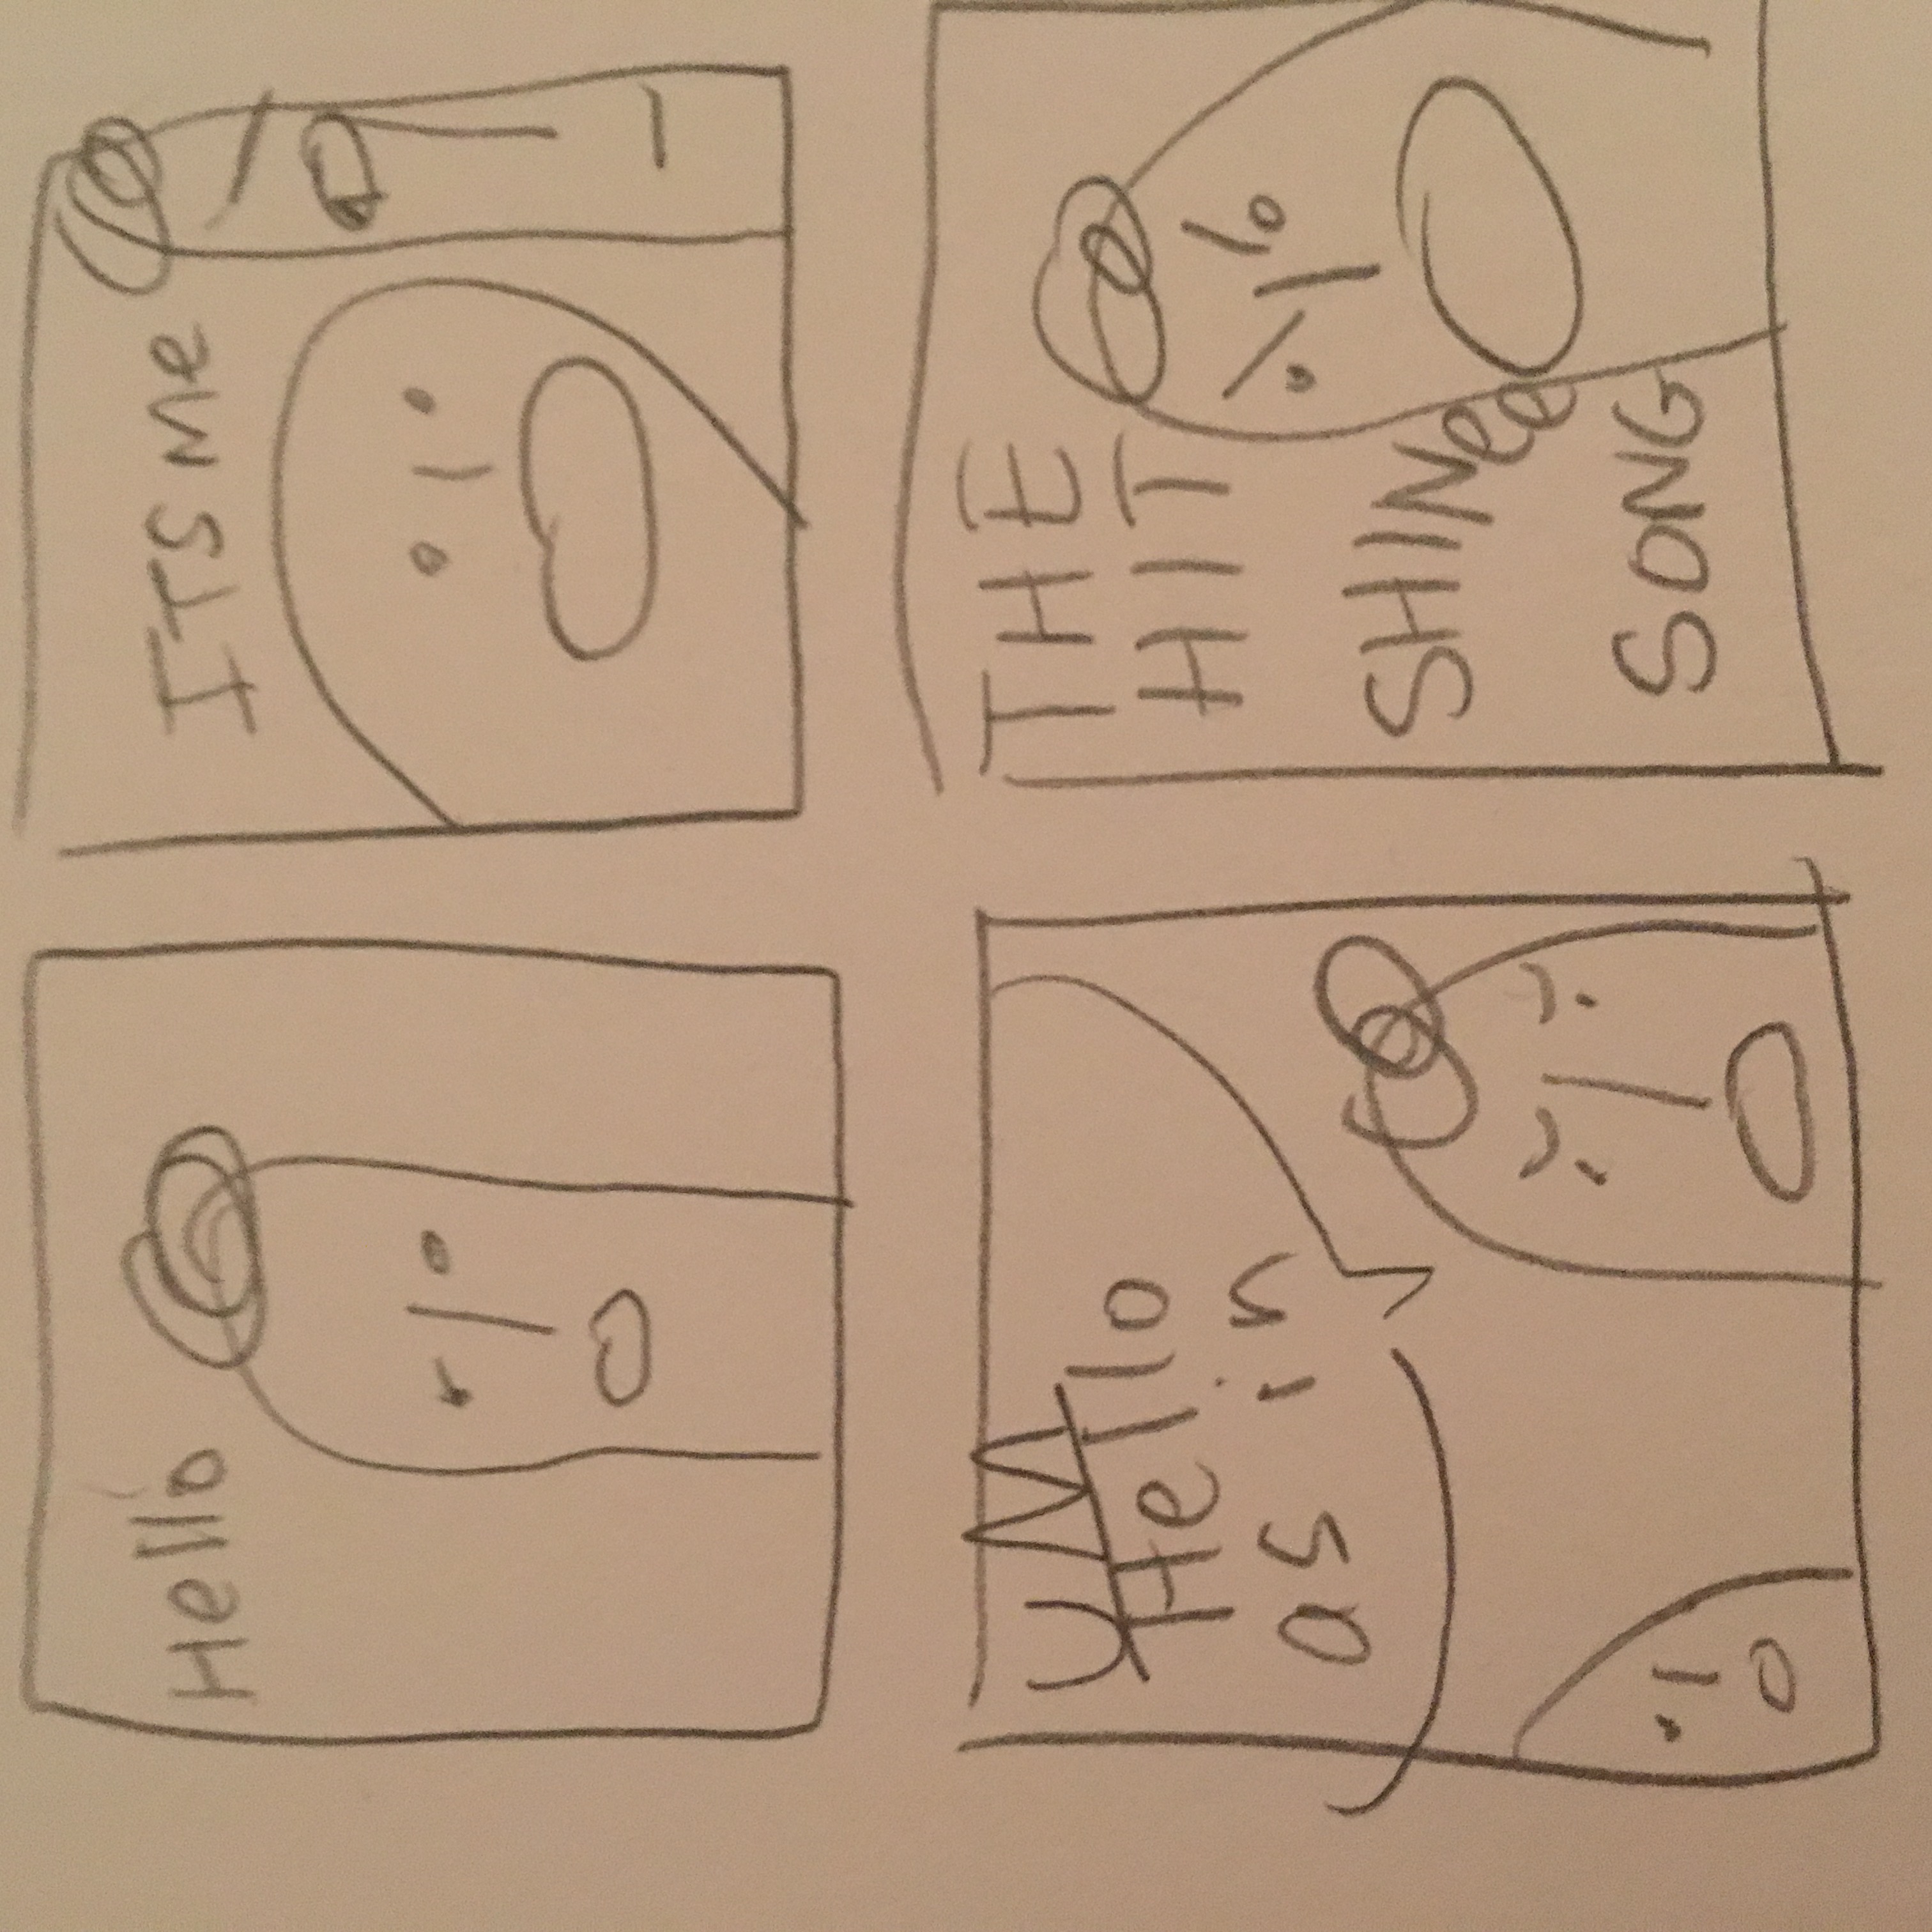 Hello
ITS Me
UM
Hello
as in
THE
HIT
SHINee
SONG